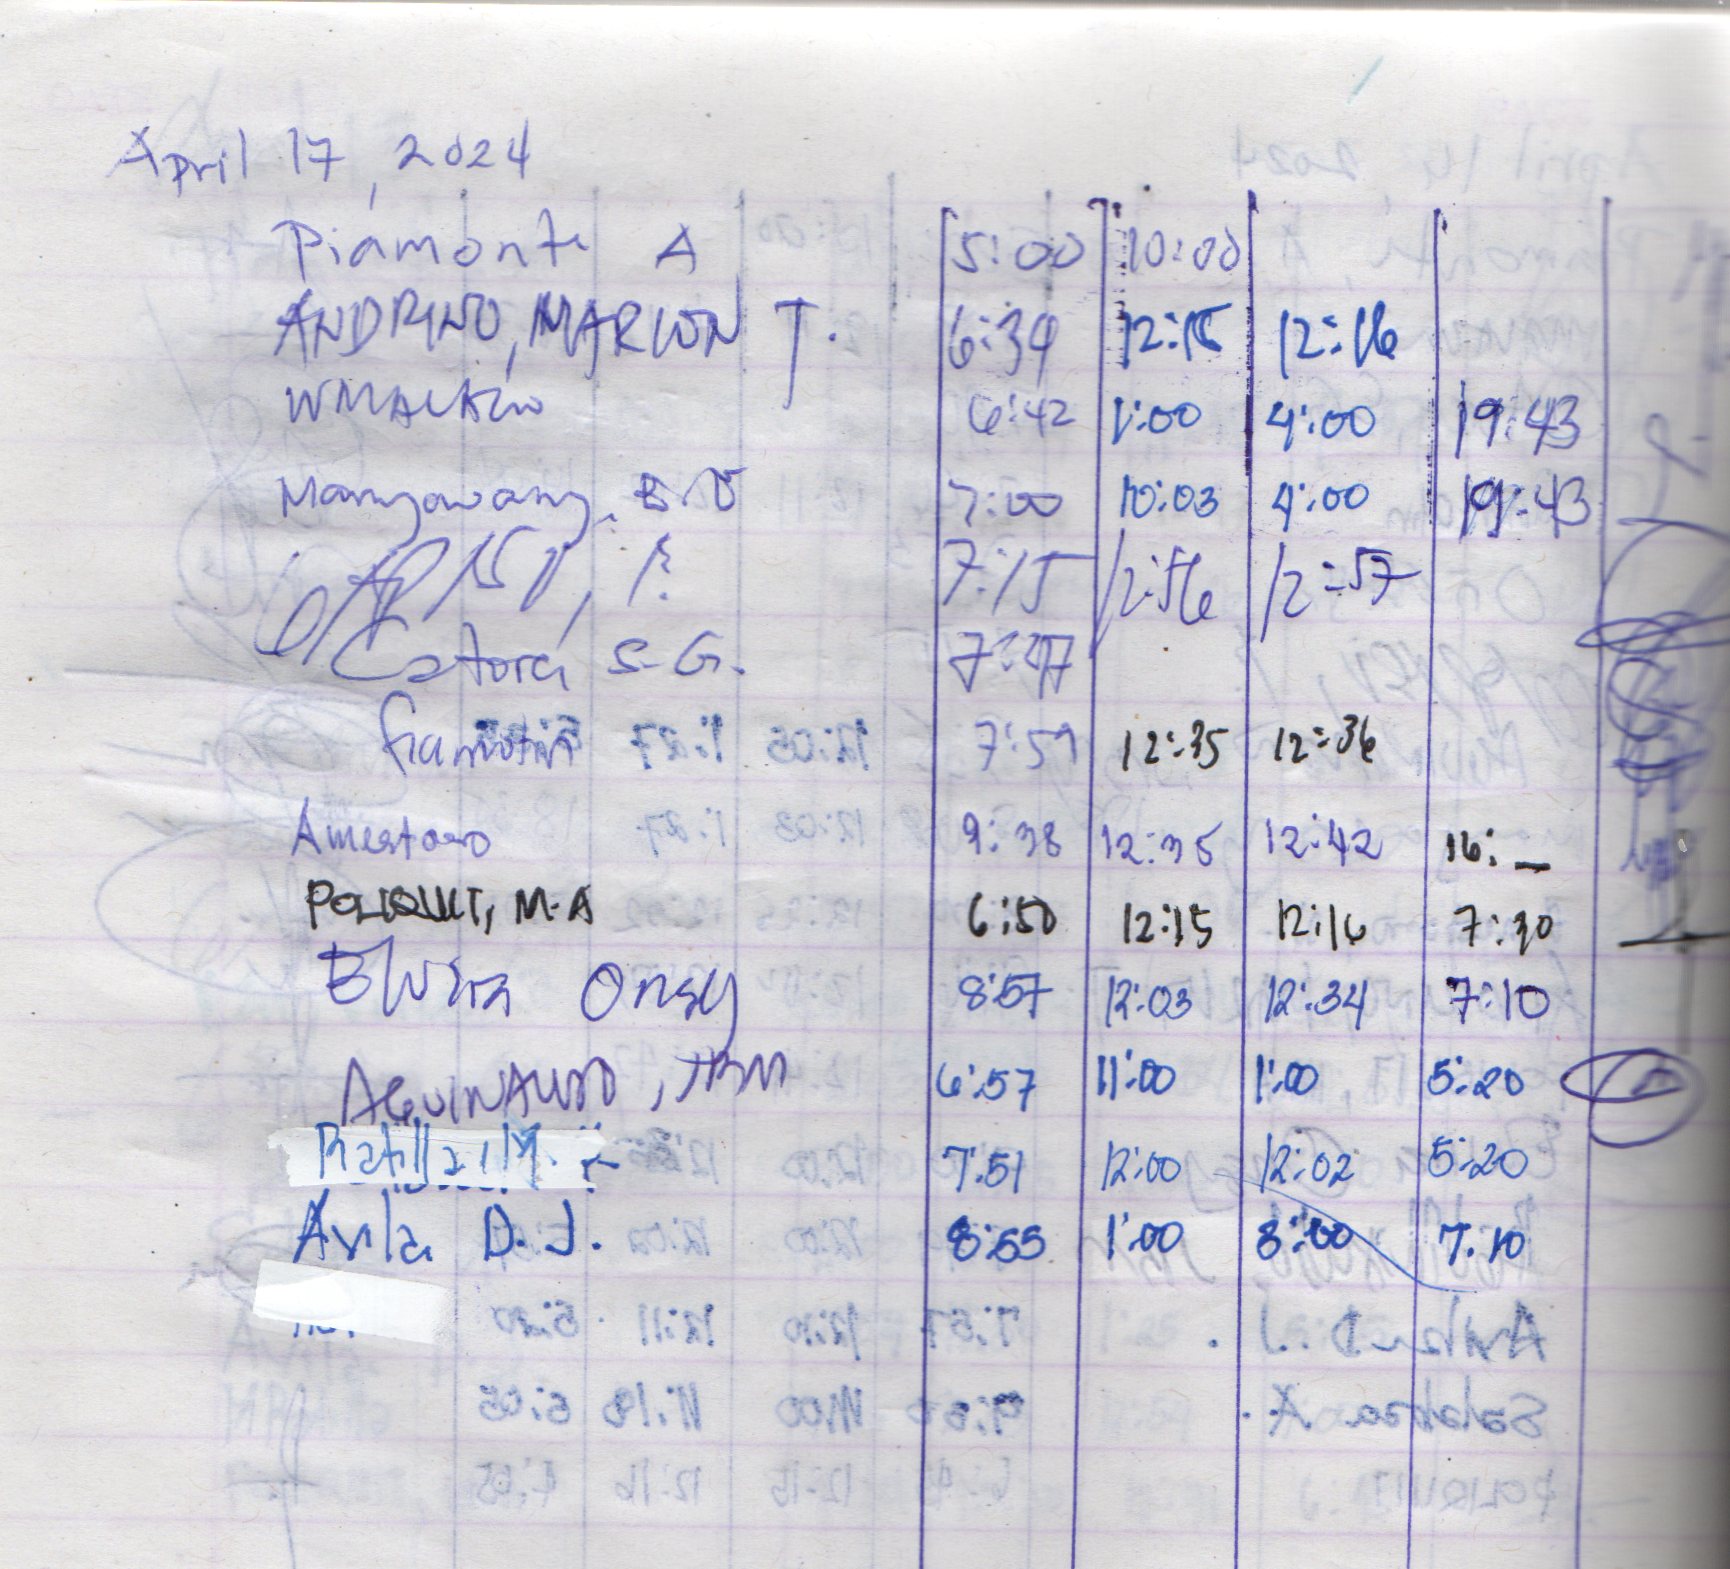 April 17, 2024
Piamonte A 5:00 10:00
ANDRINO, MARLON T. 6:39 12:15 12:16
6:42 1:00 4:00 19:43
Manyawang, B.V 7:00 10:03 4:00 19:43
7:15 12:56 12:57
Catora S.G. 7:47
7:59 12:35 12:36
Amestoso 9:38 12:35 12:42 16:_
POLIQUIT, M.A 6:50 12:15 12:16 7:30
Elvira Onsy 8:57 12:03 12:34 7:10
AGUINALDO, JBM 6:57 11:00 1:00 5:20
Ratilla, M. 7:51 12:00 12:02 5:20
Avila D.J. 8:55 1:00 8:00 7:10